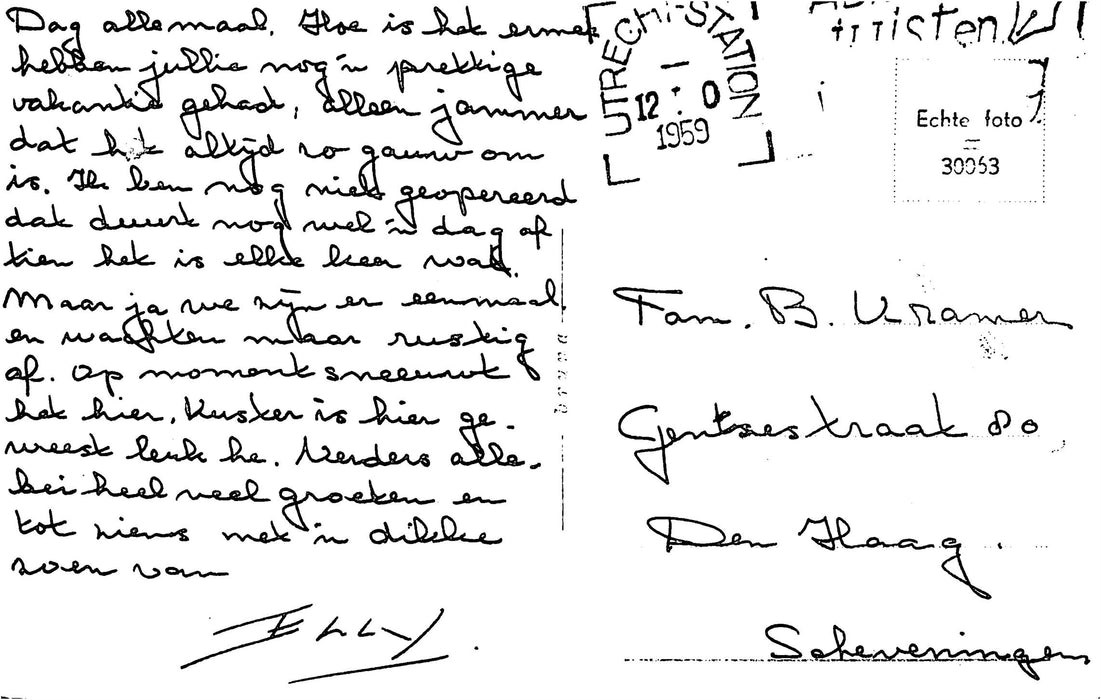 Dag allemaal. Hoe is het ermee
hebben jullie nog 'n prettige
vakantie gehad, alleen jammer
dat het altijd zo gauw om
is. Ik ben nog niet geopereerd
dat duurt nog wel 'n dag of
tien het is elke keer wat.
Maar ja we zijn er eenmaal.
en wachten maar rustig
af. Op moment sneeuwt
het hier. Kusker is hier ge-
weest leuk he. Verders alle-
bei heel veel groeten en
tot ziens met 'n dikke
zoen van
ELLY.
UTRECHT-STATION
12
1959
Echte foto
30053
Fam. B. Kramer
Gentsestraat 80
Den Haag.
Scheveningen